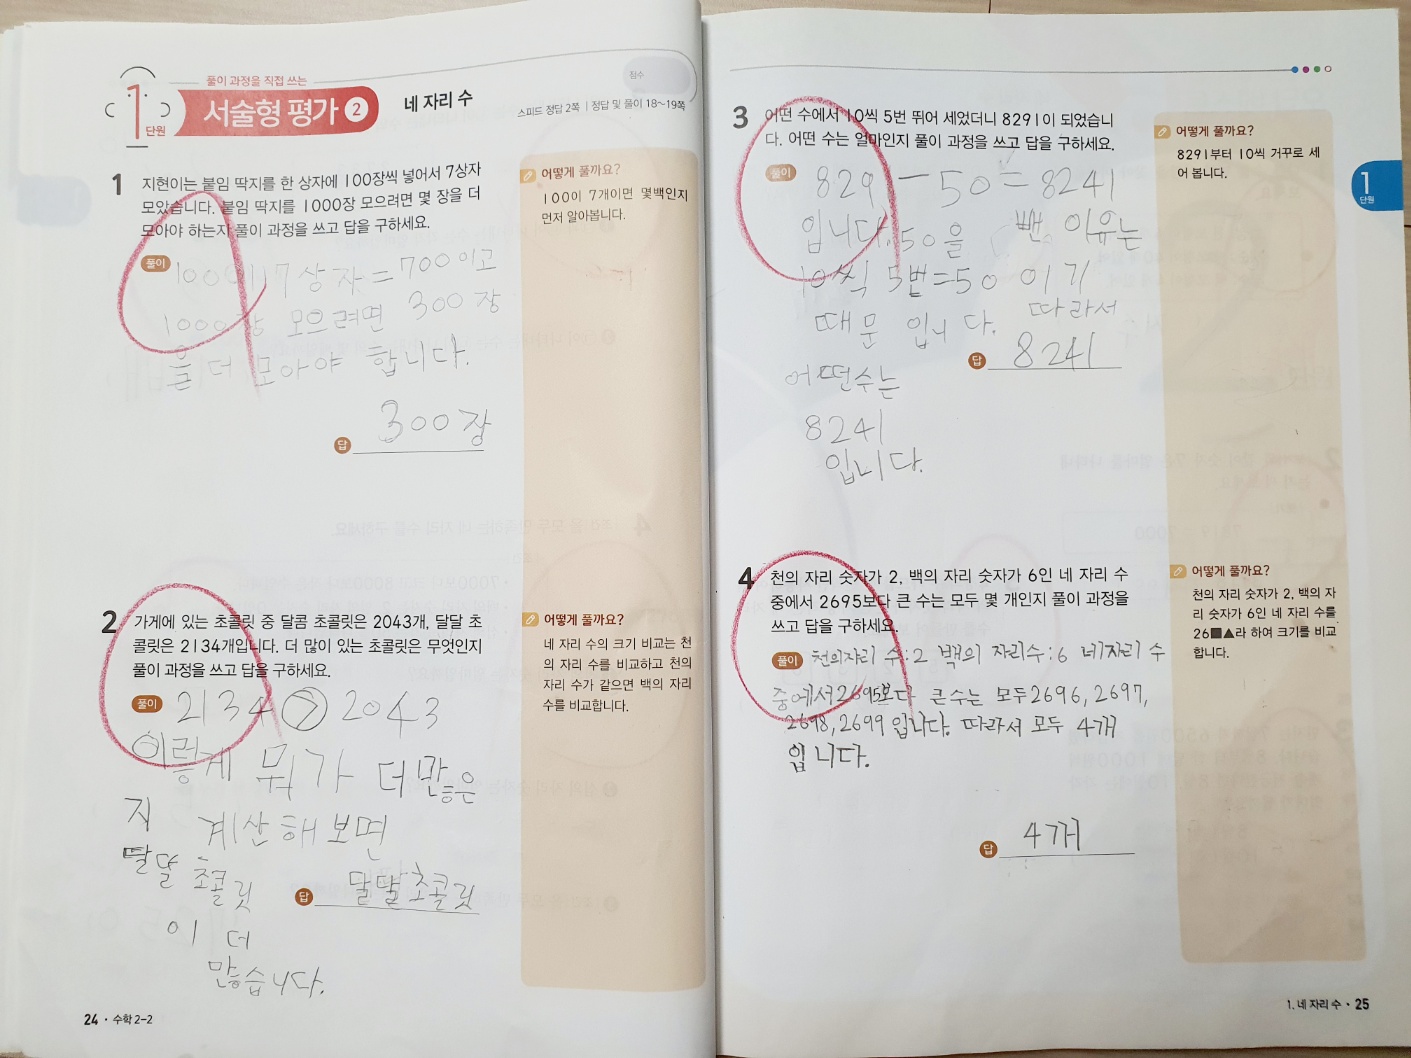 풀이 과정을 직접 쓰는
1단원
서술형 평가 2
네 자리 수
점수
스피드 정답 2쪽 | 정답 및 풀이 18~19쪽
1 지현이는 붙임 딱지를 한 상자에 100장씩 넣어서 7상자
모았습니다. 붙임 딱지를 1000장 모으려면 몇 장을 더
모아야 하는지 풀이 과정을 쓰고 답을 구하세요.
풀이 100이 7상자=700이고
1000장 모으려면 300장
을 더 모아야 합니다.
답 300장
어떻게 풀까요?
100이 7개이면 몇백인지
먼저 알아봅니다.
2 가게에 있는 초콜릿 중 달콤 초콜릿은 2043개, 달달 초
콜릿은 2134개입니다. 더 많이 있는 초콜릿은 무엇인지
풀이 과정을 쓰고 답을 구하세요.
풀이 2134 > 2043
이렇게 뭐가 더 많은
지 계산해보면
달달 초콜릿
이 더
많습니다.
답 달달초콜릿
어떻게 풀까요?
네 자리 수의 크기 비교는 천
의 자리 수를 비교하고 천의
자리 수가 같으면 백의 자리
수를 비교합니다.
24 · 수학 2-2
3 어떤 수에서 10씩 5번 뛰어 세었더니 8291이 되었습니
다. 어떤 수는 얼마인지 풀이 과정을 쓰고 답을 구하세요.
풀이 8291-50=8241
입니다. 50을 뺀 이유는
10씩 5번=50 이기
때문 입니다. 따라서
어떤수는
8241
입니다.
답 8241
어떻게 풀까요?
8291부터 10씩 거꾸로 세
어 봅니다.
1단원
4 천의 자리 숫자가 2, 백의 자리 숫자가 6인 네 자리 수
중에서 2695보다 큰 수는 모두 몇 개인지 풀이 과정을
쓰고 답을 구하세요.
풀이 천의자리 수:2 백의 자리수:6 네자리 수
중에서2695보다 큰수는 모두2696, 2697,
2698, 2699 입니다. 따라서 모두 4개
입니다.
답 4개
어떻게 풀까요?
천의 자리 숫자가 2, 백의 자
리 숫자가 6인 네 자리 수를
26■▲라 하여 크기를 비교
합니다.
1. 네 자리 수 · 25